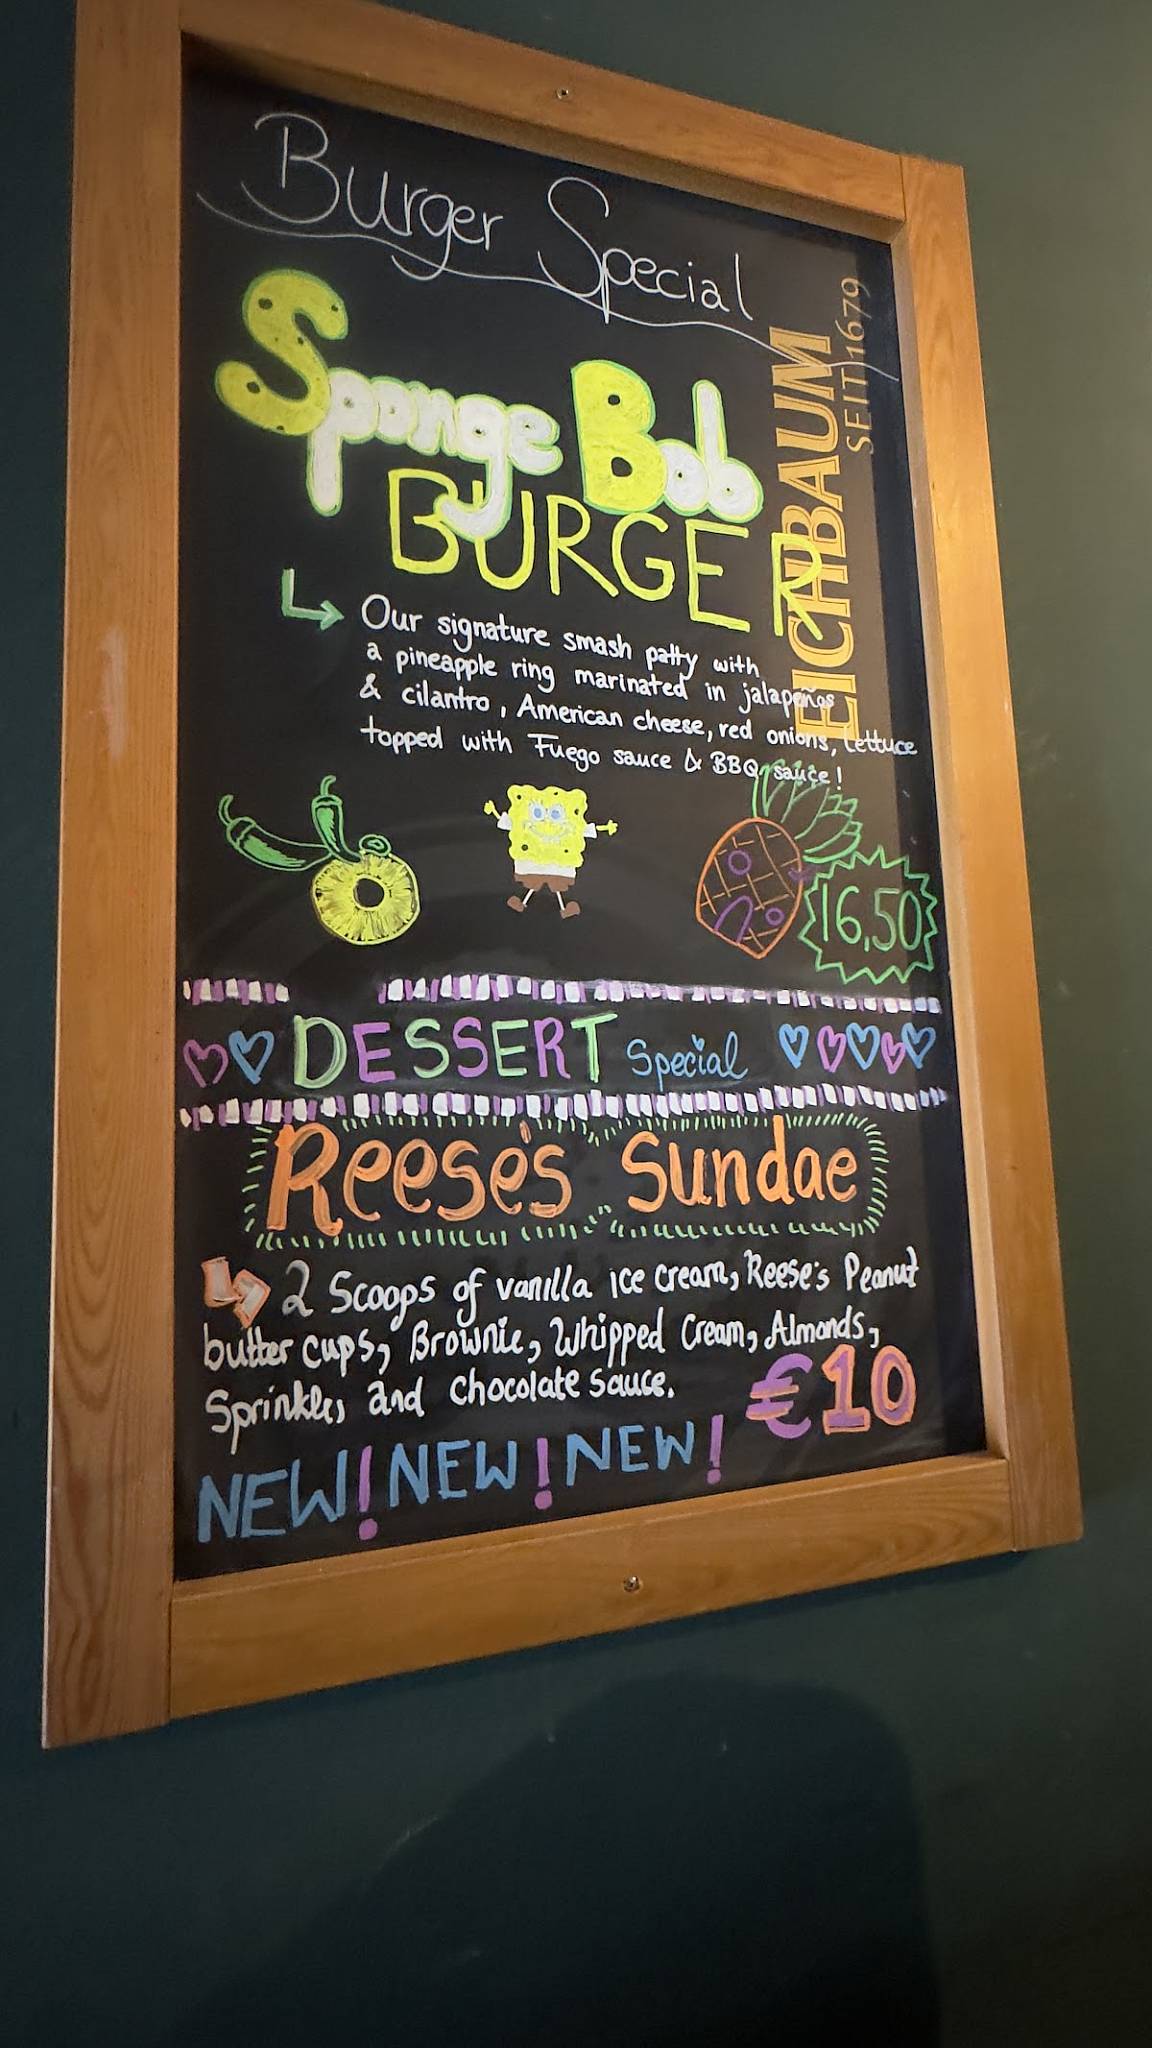 Burger Special
EICHBAUM
SEIT 1679
Sponge Bob
BURGER
Our signature smash patty with
a pineapple ring marinated in jalapeños
& cilantro, American cheese, red onions, Lettuce
topped with Fuego sauce & BBQ sauce!
16,50
DESSERT Special
Reese's Sundae
2 Scoops of vanilla ice cream, Reese's Peanut
butter cups, Brownie, Whipped Cream, Almonds,
Sprinkles and Chocolate sauce.
€10
NEW! NEW! NEW!